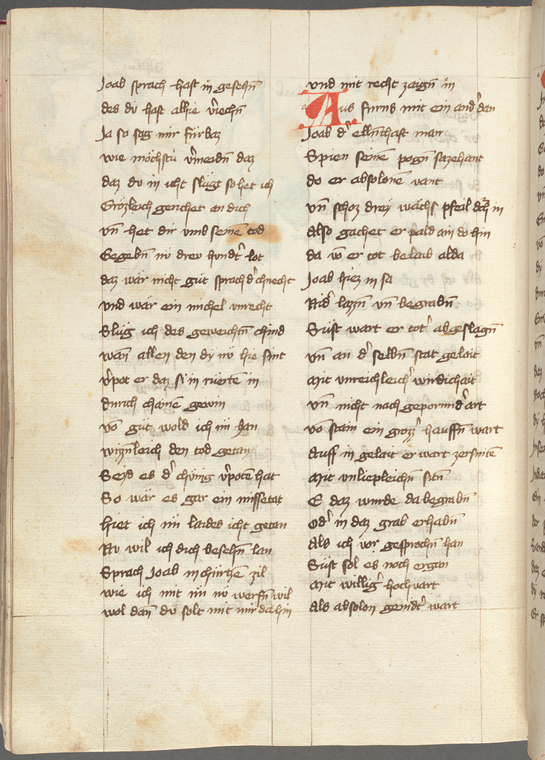 Joab sprach hast in gesehn̄
des du hast alhie v̾iechn̄
Ja so sag mir fürbaz
wie möchstu v̾meidn̄ daz
daz du in icht slugst so het ich
Grözleich gerichet an dich
vn̄ het dir vmb seinē tod
Gegebn̄ nü drew hundt̾ lot
daz wär nicht güt sprach d̾ chnecht
vnd wär ein michel vnrecht
Slüg ich des geweichn̄ chind
wan̄ allen den dy nü hie sint
v̾pot er daz si in rüerte in
durich chainē gewin
vō güt wold ich im han
den tod getan
Seyd es d̾ chünig v̾poten hat
So wär es gar ein missetat
hiet ich im laides icht getan
Nu wil ich dich besehn̄ lan
Sprach Joab in churczē zil
wie ich mit im nü werfn̄ wil
wol dan̄ du solt mit mir dahin
vnd mit recht zaign̄ in
Aus furns mit ein and̾ dan
Joab d̾ ellenthaft man
Spien seinē pogn̄ sazehant
do er absolonē vant
vn̄ schoz drey wachs pfeil dch̾ in
Also gachet er pald an do hin
da er tot belaib alda
Joab hiez in sa
Nid̾ lazzn̄ vn̄ begrabn̄
Süst wart er tot̾ abgeslagn̄
vn̄ an d̾ selbn̄ stat geleit
Mit vnreichleich̾ wirdichait
vn̄ nicht nach gepornnd̾ art
vō stain ein groz̾ hauffn̄ wart
Auff in geleit er wart
Mit vnliepleichn̄ sitn̄
E daz wurde da begrabn̄
Od̾ in daz grab erhabn̄
Als ich vor gesprochn̄ han
Süst sol es noch ergan
Mit willig̾ hochvart
Als absolon wart